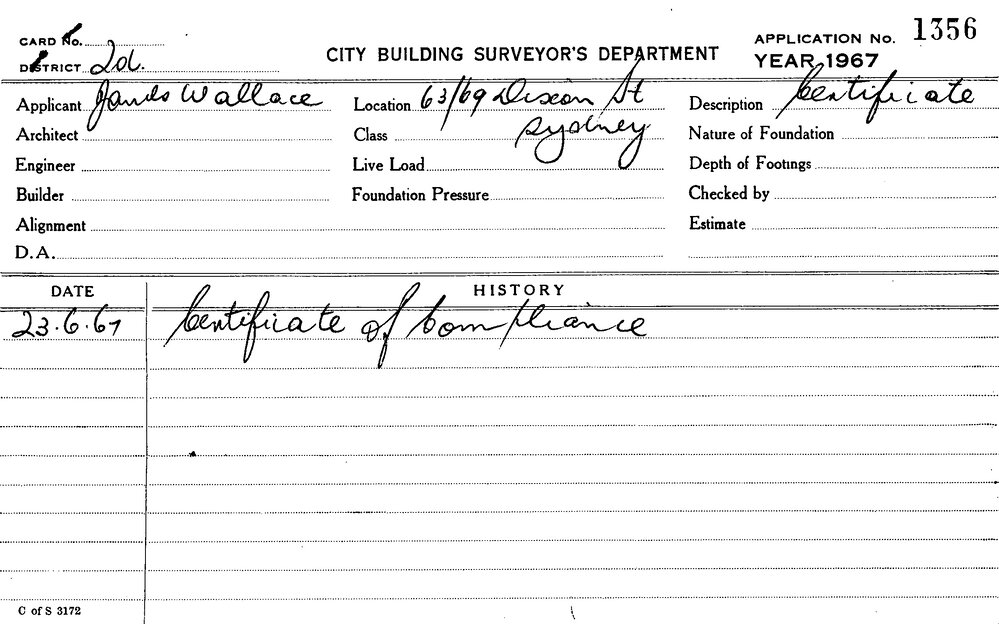 CARD No.
APPLICATION No. 1356
DISTRICT 2d.
CITY BUILDING SURVEYOR'S DEPARTMENT
YEAR 1967
Applicant James Wallace
Location 63/69 Dixon St
Sydney
Description Certificate
Architect
Class
Nature of Foundation
Engineer
Live Load
Depth of Footings
Builder
Foundation Pressure
Checked by
Alignment
Estimate
D.A.
DATE
HISTORY
23.6.67 Certificate of Compliance
C of S 3172